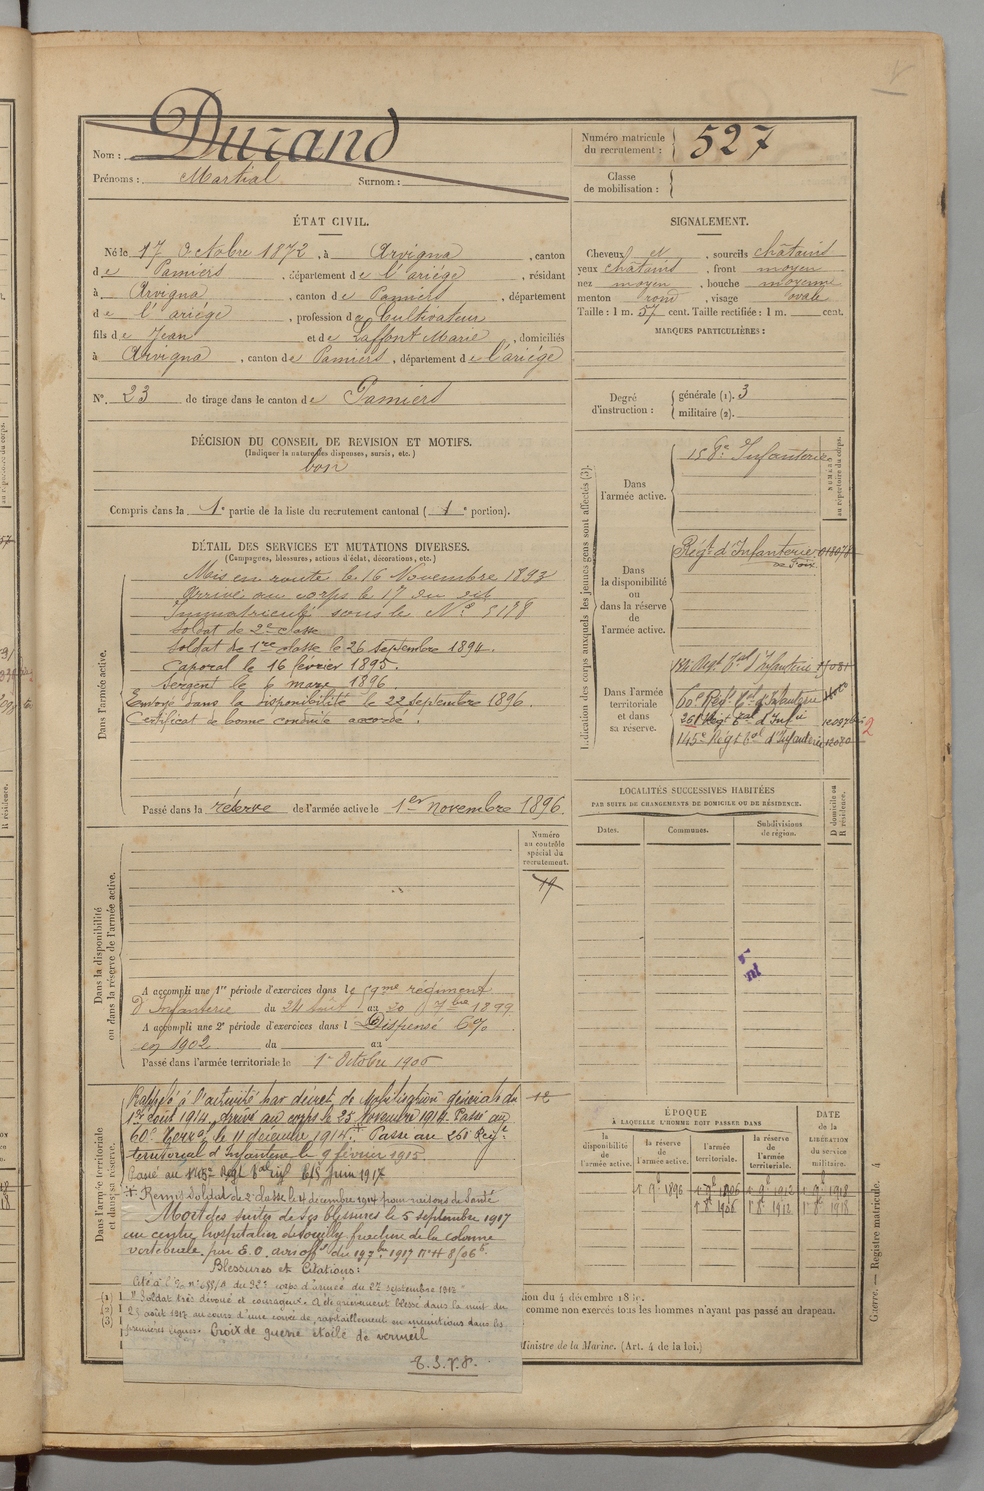 Nom : Durand
Prénoms : Martial Surnom :
Numéro matricule du recrutement : 527
Classe de mobilisation :
ÉTAT CIVIL.
Né le 17 Octobre 1872, à Arvigna, canton
de Pamiers, département de l'ariége, résidant
à Arvigna, canton de Pamiers, département
de l'ariége, profession de Cultivateur
fils de Jean et de Laffont Marie, domiciliés
à Arvigna, canton de Pamiers, département de l'ariége
N°. 23 de tirage dans le canton de Pamiers
SIGNALEMENT.
Cheveux et, sourcils châtains
yeux châtains, front moyen
nez moyen, bouche moyenne
menton rond, visage ovale
Taille : 1 m. 57 cent. Taille rectifiée : 1 m. cent.
MARQUES PARTICULIÈRES :
Degré d'instruction : générale (1). 3
militaire (2).
DÉCISION DU CONSEIL DE REVISION ET MOTIFS.
(Indiquer la nature des dispenses, sursis, etc.)
bon
Compris dans la 1e partie de la liste du recrutement cantonal ( 1e portion).
DÉTAIL DES SERVICES ET MUTATIONS DIVERSES.
(Campagnes, blessures, actions d'éclat, décorations, etc.)
Dans l'armée active.
Mis en route le 16 Novembre 1893
arrivé au corps le 17 du dit
Immatriculé sous le No 5178
Soldat de 2e classe
Soldat de 1re classe le 26 septembre 1894.
Caporal le 16 février 1895.
Sergent le 6 mars 1896
Envoyé dans la disponibilité le 22 septembre 1896.
Certificat de bonne conduite accordé.
Passé dans la réserve de l'armée active le 1er novembre 1896.
Indication des corps auxquels les jeunes gens sont affectés (3).
NUMÉRO au répertoire du corps.
Dans l'armée active.
Infanterie
Dans la disponibilité ou dans la réserve de l'armée active.
Régt d'Infanterie
de Foix
Dans l'armée territoriale et dans sa réserve.
Regt Tal d'Infanterie
60e Régt Tal d'Infanterie
261 Regt Tal d'Infie
145e Régt Tal d'Infanterie
2
LOCALITÉS SUCCESSIVES HABITÉES
PAR SUITE DE CHANGEMENTS DE DOMICILE OU DE RÉSIDENCE.
Dates. Communes. Subdivisions de région. D domicile ou R résidence.
Numéro au contrôle spécial du recrutement.
19
Dans la disponibilité ou dans la réserve de l'armée active.
A accompli une 1re période d'exercices dans le 59me régiment
d'Infanterie du 24 août au 20 7bre 1899
A accompli une 2e période d'exercices dans l Dispensé 6%
en 1902 du au
Passé dans l'armée territoriale le 1er Octobre 1906
Dans l'armée territoriale et dans sa réserve.
Rappelé à l'activité par décret de Mobilisation générale du
1er août 1914, arrivé au corps le 25 novembre 1914. Passé au
60e Terral le 11 décembre 1914. * Passé au 261 Régt
territorial d'Infanterie le 9 février 1915.
Passé au 145e Regt Tal Juin 1917
* Remis Soldat de 2e classe le 4 décembre 1914 pour raisons de Santé
Mort des suites de ses blessures le 5 septembre 1917
au centre hospitalier de Souilly fracture de la colonne
vertebrale.
Blessures et Citations :
Cité à l'O. du corps d'armée du 27 septembre 1917
"Soldat très dévoué et courageux. A été grièvement blessé dans la nuit du
août 1917 au cours d'une corvée de rapitaillement en munitions dans les
premières lignes. Croix de guerre étoile de vermeil
12
ÉPOQUE
À LAQUELLE L'HOMME DOIT PASSER DANS
la disponibilité de l'armée active. la réserve de l'armée active. l'armée territoriale. la réserve de l'armée territoriale.
DATE de la LIBÉRATION du service militaire.
1r 9bre 1896 1r 9bre 1906 1r 9bre 1912 1r 9bre 1918
1r 8bre 1906 1r 8bre 1912 1r 8bre 1918
(1)
(2)
(3)
comme non exercés tous les hommes n'ayant pas passé au drapeau.
Ministre de la Marine. (Art. 4 de la loi.)
Guerre. — Registre matricule. 4